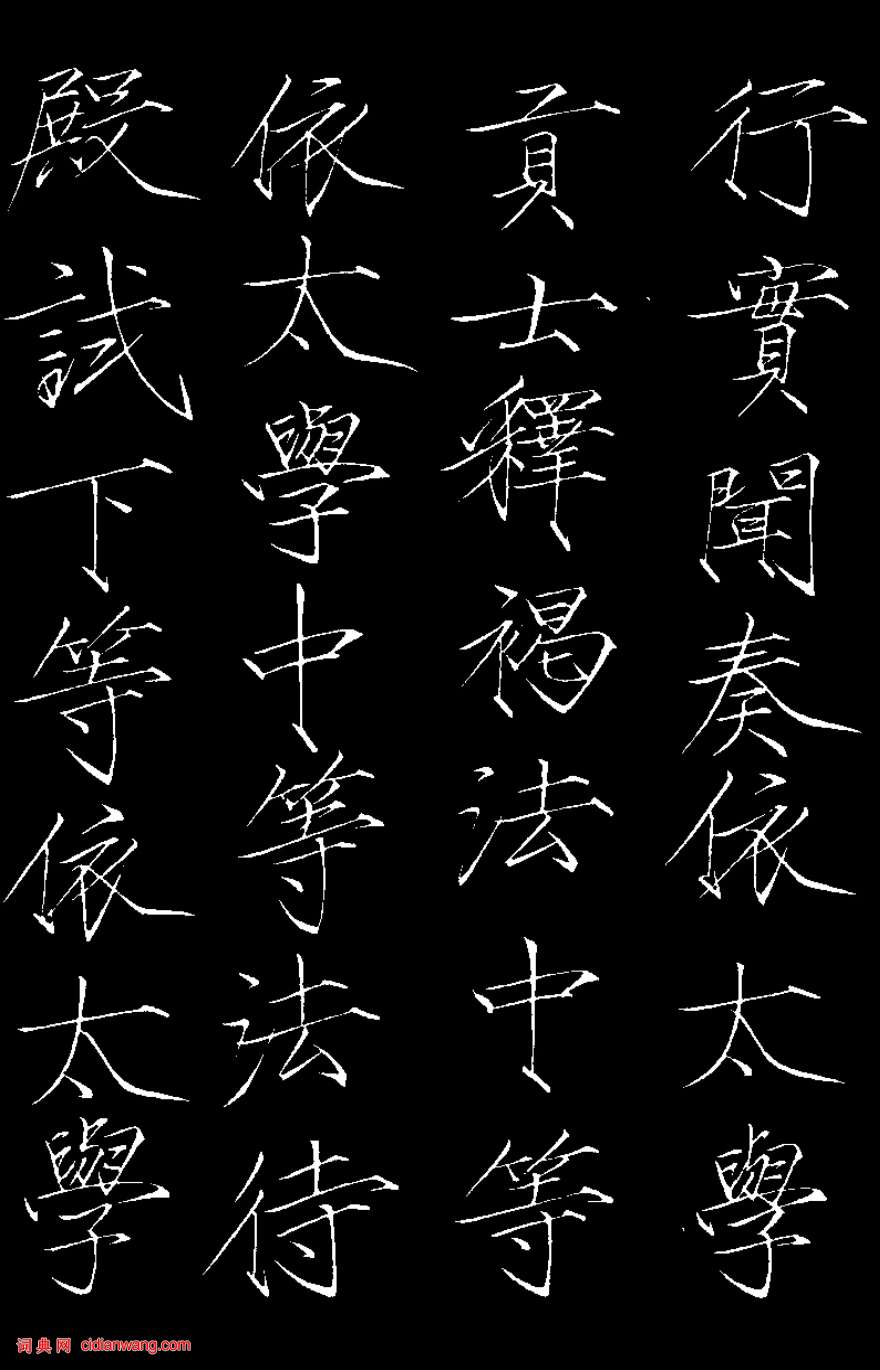 行實聞奏依太學
貢士釋褐法中等
依太學中等法待
殿試下等依太學
词典网 cidianwang.com